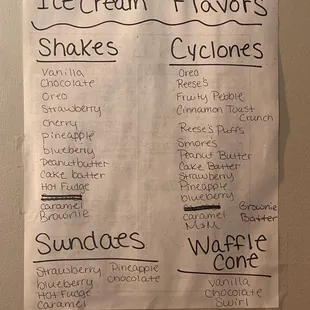 Ice Cream Flavors
Shakes
Vanilla
Chocolate
Oreo
Strawberry
Cherry
pineapple
blueberry
Peanutbutter
Cake batter
Hot Fudge
caramel
Brownie
Cyclones
Oreo
Reese's
Fruity Pebble
Cinnamon Toast
Crunch
Reese's Puffs
Smores
Peanut Butter
Cake Batter
Strawberry
Pineapple
blueberry
caramel
M&M
Brownie
Batter
Sundaes
Strawberry Pineapple
blueberry Chocolate
Hot Fudge
Caramel
Waffle
Cone
Vanilla
Chocolate
Swirl